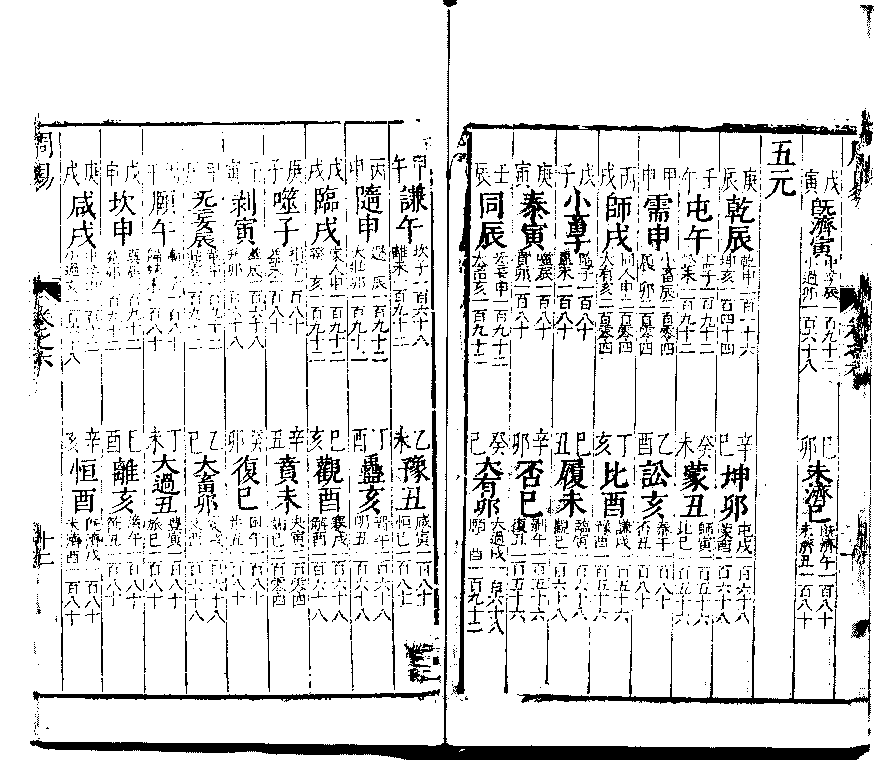 戊寅 既濟寅 中孚辰一百九十二 小過卯一百六十八 己卯 未濟巳 既濟午一百八十 未濟丑一百八十
五元
庚辰 乾辰 乾申 坤亥一百四十四 辛巳 坤卯 屯戌一百六十八 蒙酉一百六十八
壬午 屯午 需子一百九十二 訟未一百九十二 癸未 蒙丑 師寅一百五十六 比巳一百五十六
甲申 需申 小畜辰二百零四 履卯二百零四 乙酉 訟亥 泰午一百八十 否丑一百八十
丙戌 師戌 同人申二百零四 大有亥二百零四 丁亥 比酉 謙戌一百五十六 豫酉一百五十六
戊子 小畜子 隨子一百八十 蠱未一百八十 己丑 履未 臨寅一百六十八 觀巳一百六十八
庚寅 泰寅 噬辰一百八十 賁卯一百八十 辛卯 否巳 剝午一百五十六 復丑一百五十六
壬辰 同辰 无妄申一百九十二 大畜亥一百九十二 癸巳 大有卯 大過戌一百六十八 頤酉一百九十二
甲午 謙午 坎子一百六十八 離未一百九十二 乙未 豫丑 咸寅一百八十 恒巳一百八十
丙申 隨申 遯辰一百九十二 大壯卯一百九十二 丁酉 蠱亥 晉午一百六十八 明丑一百六十八
戊戌 臨戌 家人申一百九十二 睽亥一百九十二 己亥 觀酉 蹇戌一百六十八 解酉一百六十八
庚子 噬子 損子一百八十 益未一百八十 辛丑 賁未 夬寅二百零四 姤巳二百零四
壬寅 剝寅 萃辰一百六十八 升卯一百六十八 癸卯 復巳 困午一百八十 井丑一百八十
甲辰 无妄辰 革申一百九十二 鼎亥一百九十二 乙巳 大畜卯 震戌一百六十八 艮酉一百六十八
午 頤午 漸子一百八十 歸妹未一百八十 丁未 大過丑 豐寅一百八十 旅巳一百八十
戊申 坎申 巽辰一百九十二 兌卯一百九十二 己酉 離亥 渙午一百八十 節丑一百八十
庚戌 咸戌 中孚申一百九十二 小過亥一百六十八 辛亥 恒酉 既濟戌一百八十 未濟酉一百八十
周易 卷之六 十二